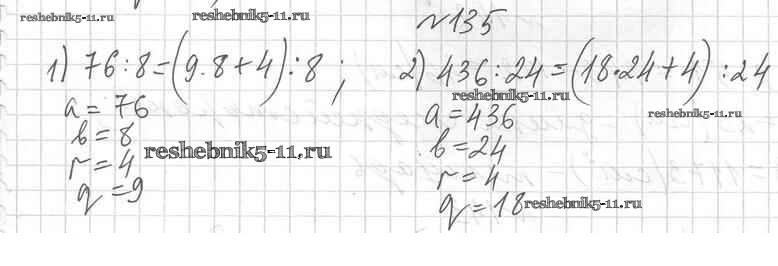 №135
1) 76:8=(9·8+4):8;
a=76
b=8
r=4
q=9
2) 436:24=(18·24+4):24
a=436
b=24
r=4
q=18
reshebnik5-11.ru
reshebnik5-11.ru
reshebnik5-11.ru
reshebnik5-11.ru
reshebnik5-11.ru
reshebnik5-11.ru